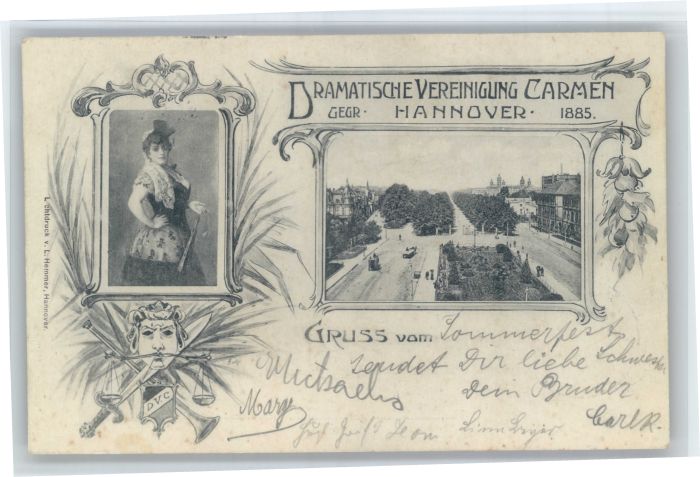 DRAMATISCHE VEREINIGUNG CARMEN
GEGR. HANNOVER. 1885.
Lichtdruck v. L. Hemmer, Hannover.
GRUSS vom Sommerfest
sendet Dir liebe Schwester
Dein Bruder
Carl R.
Michaelis
Mary
D.V.C